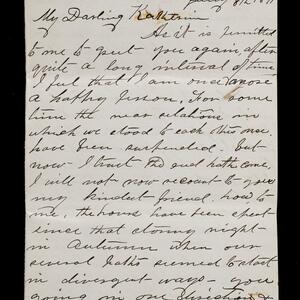 My Darling Kathrin
As it is permitted
to me to greet you again after
quite a long interval of time
I feel that I am once more
a happy person. For some
time the near relations in
which we stood to each other
have been suspended. But
now I trust the end hath come,
I will not now recount to you
my kindest friend, how to
me, the hours have been spent
since that stormy night
in Autumn when our
several paths seemed to start
in divergent ways — you
going in one direction &